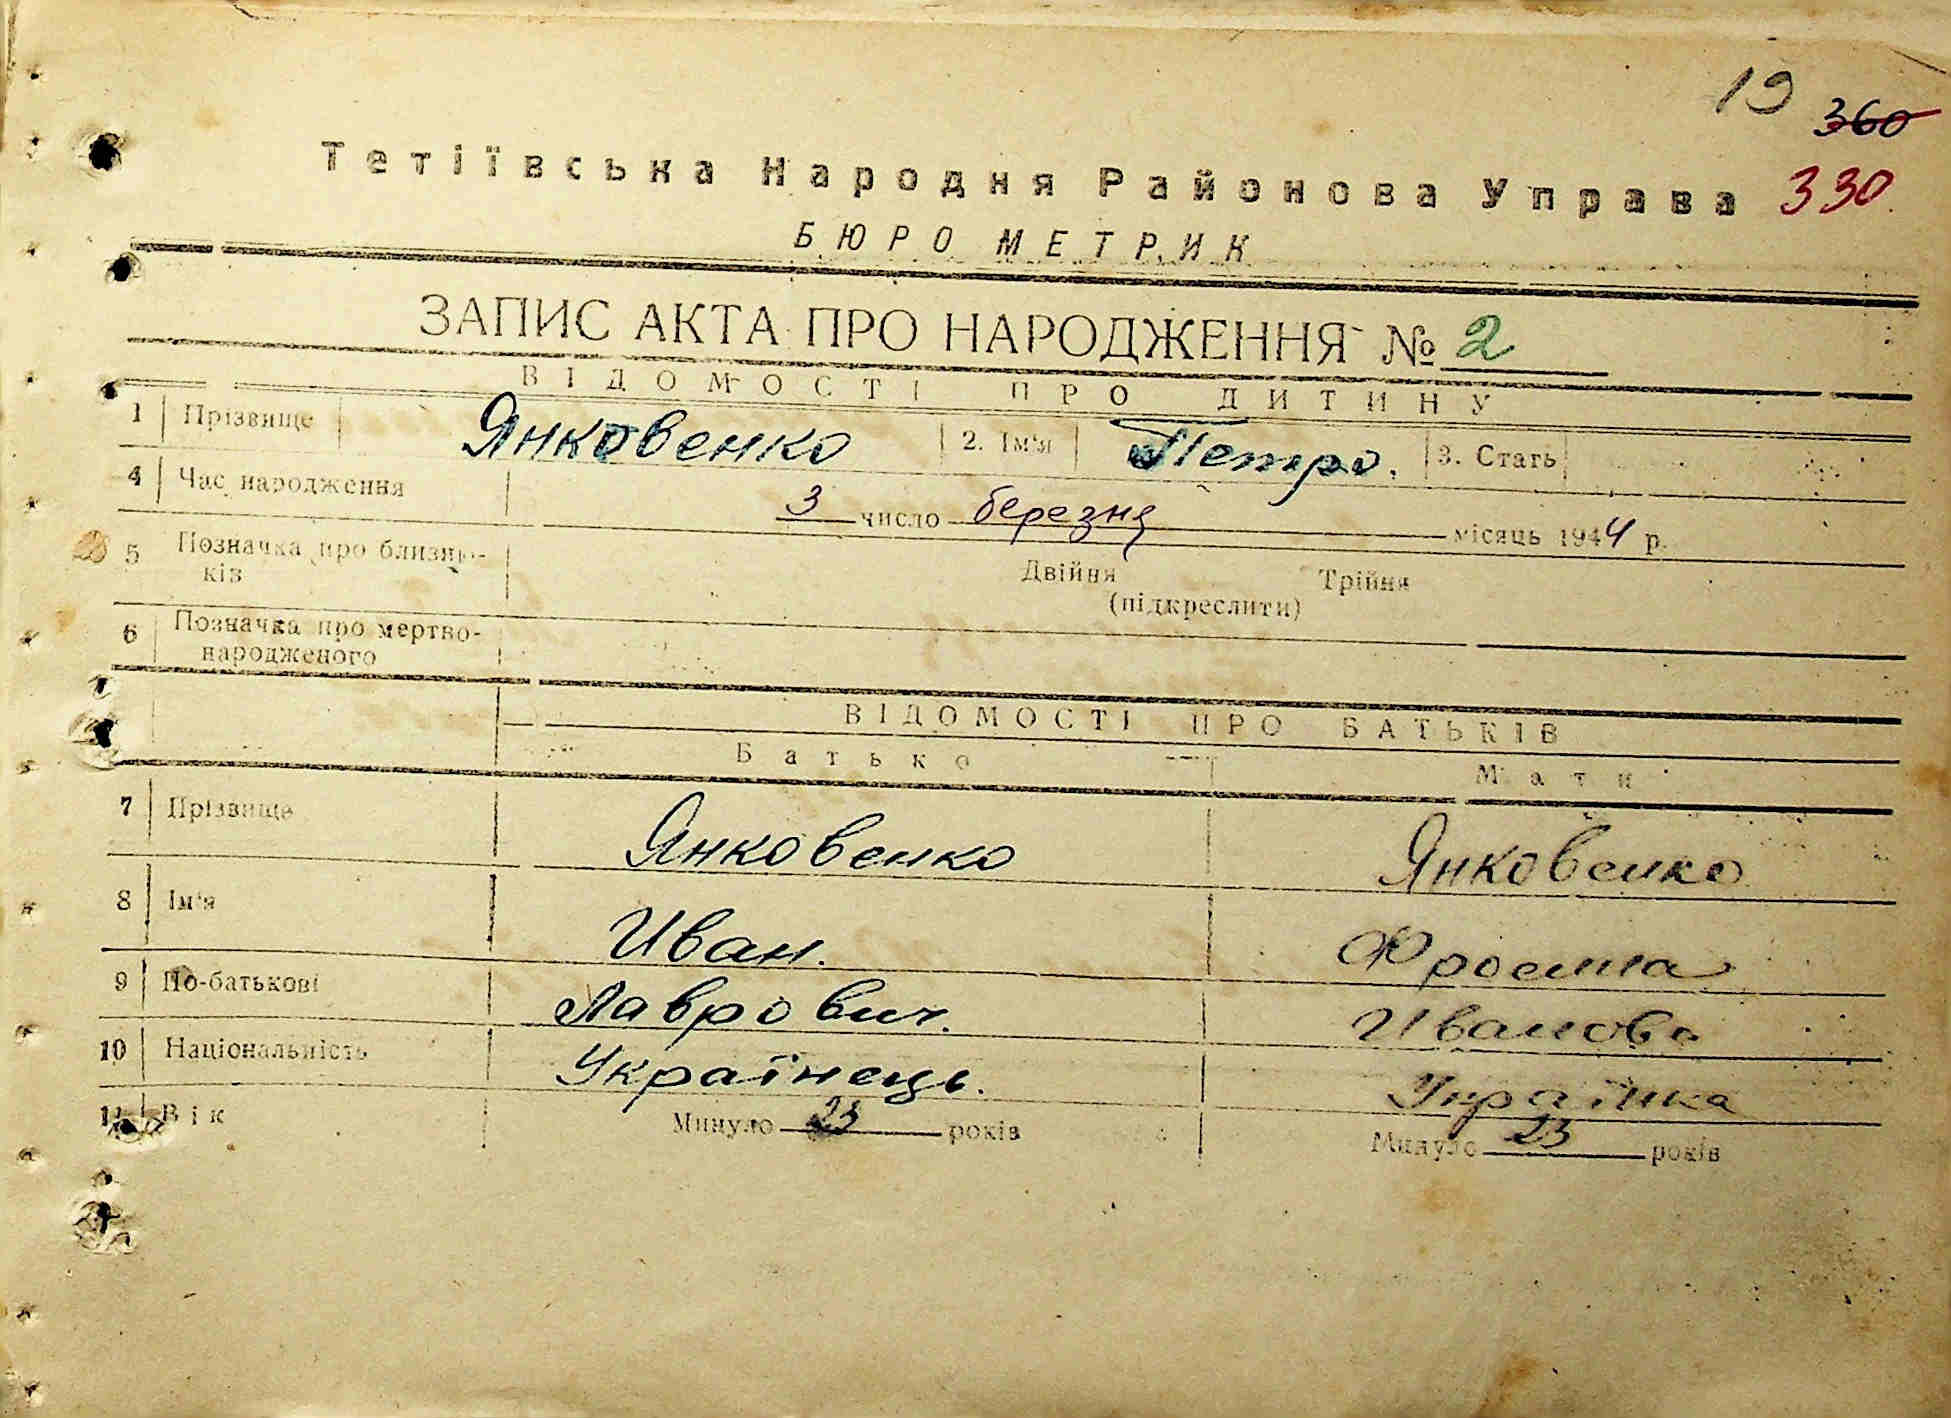 19
360
Тетіївська Народня Районова Управа 330.
БЮРО МЕТРИК
ЗАПИС АКТА ПРО НАРОДЖЕННЯ № 2
ВІДОМОСТІ ПРО ДИТИНУ
1 Прізвище Янковенко 2. Ім'я Петро. 3. Стать
4 Час народження 3 число березня місяць 1944 р.
5 Позначка про близню-
ків Двійня Трійня
(підкреслити)
6 Позначка про мертво-
народженого
ВІДОМОСТІ ПРО БАТЬКІВ
Батько Мати
7 Прізвище Янковенко Янковенко
8 Ім'я Иван. Фросина
9 По-батькові Лаврович. Иванова
10 Національність Українець. Українка
11 Вік Минуло 23 років Минуло 23 років